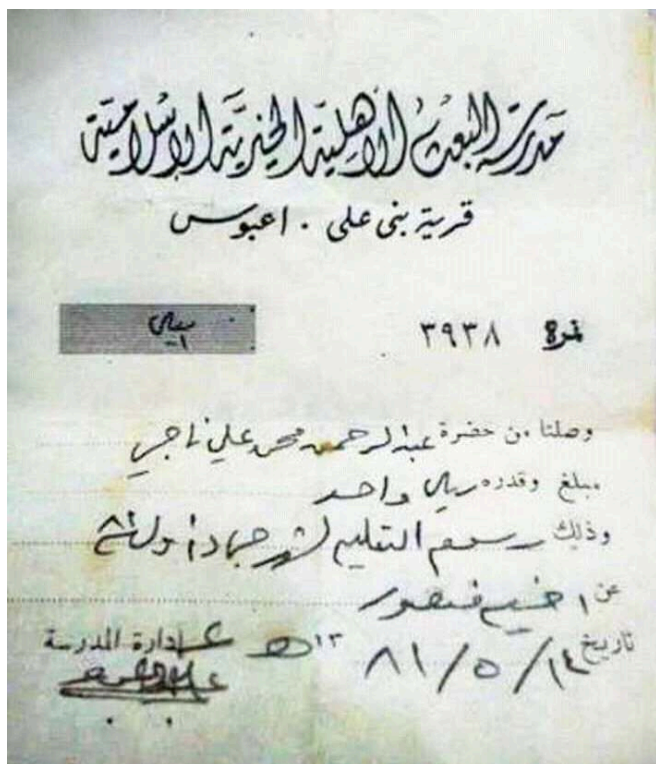 مدرسة البعث الأهلية الخيرية الإسلامية
قرية بني علي . اعبوس
نمرة ٣٩٣٨
ريال
وصلنا من حضرة عبدالرحمن محمد علي ناجي
مبلغ وقدره ريال واحد
وذلك رسوم التعليم لشهر جماد أول ٨١
عن
تاريخ ١٤/٥/٨١ ١٣هـ
إدارة المدرسة